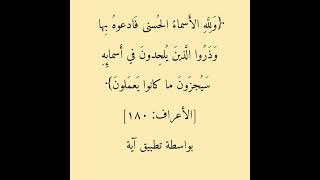 ﴿وَلِلَّهِ الأَسماءُ الحُسنى فَادعوهُ بِها
وَذَرُوا الَّذينَ يُلحِدونَ في أَسمائِهِ
سَيُجزَونَ ما كانوا يَعمَلونَ﴾
[الأعراف: ١٨٠]
بواسطة تطبيق آية